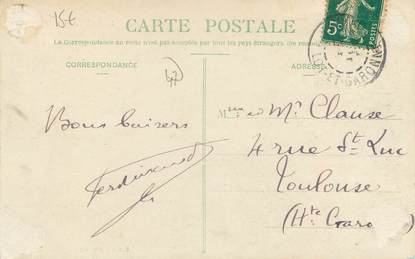 15€
CARTE POSTALE
La Correspondance au recto n'est pas acceptée par tous les pays étrangers.
CORRESPONDANCE
ADRESSE
LOT-ET-GARONNE
5c
POSTES
47
Bons baisers
Ferdinand
Mme et Mr Clause
4 rue St Luc
Toulouse
(Hte Garo